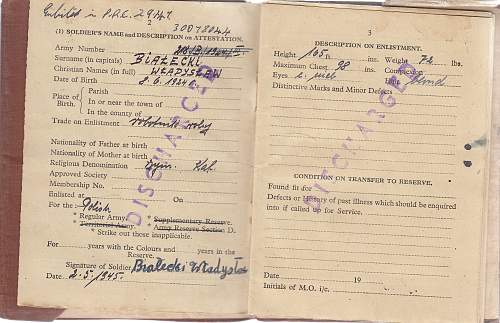 Enlisted in P.R.C. 2 9 47
2
30078044
(1) SOLDIER'S NAME and DESCRIPTION on ATTESTATION.
Army Number
Surname (in capitals) BIAŁECKI
Christian Names (in full) WŁADYSŁAW
Date of Birth 8.6.1924
Place of Birth. Parish
In or near the town of
In the county of
Trade on Enlistment
Nationality of Father at birth
Nationality of Mother at birth
Religious Denomination Rzym. Kat.
Approved Society
Membership No.
Enlisted at On
For the :- Polish
* Regular Army. * Supplementary Reserve.
* Territorial Army. * Army Reserve Section D.
* Strike out those inapplicable.
For years with the Colours and years in the
Reserve.
Signature of Soldier Białecki Władysław
Date 2.5.1945.
DISCHARGED
3
DESCRIPTION ON ENLISTMENT.
Height 165 ft. ins. Weight 72 lbs.
Maximum Chest 98 ins. Complexion
Eyes Hair blond
Distinctive Marks and Minor Defects
CONDITION ON TRANSFER TO RESERVE.
Found fit for
Defects or History of past illness which should be enquired
into if called up for Service.
Date 19
Initials of M.O. i/c.
DISCHARGED